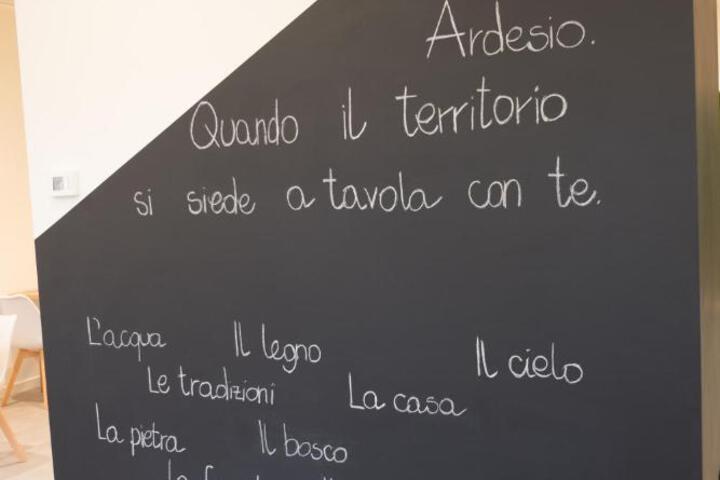 Ardesio.
Quando il territorio
si siede a tavola con te.
L'acqua Il legno Il cielo
Le tradizioni La casa
La pietra Il bosco